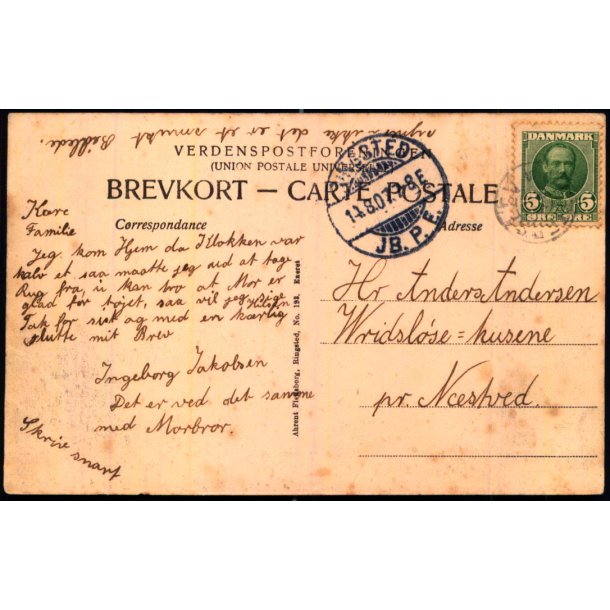 det er et smukt Billede.
VERDENSPOSTFORENINGEN
(UNION POSTALE UNIVERSELLE)
BREVKORT — CARTE POSTALE
Correspondance
Adresse
Kære
Familie
Jeg kom Hjem da Klokken var
halv et saa maatte jeg ud at tage
Rug fra, i kan tro at Mor er
glad for tøjet, saa vil jeg sige
Tak for sidst og med en kærlig Hilsen
slutte mit Brev
Ingeborg Jakobsen
Det er ved det samme
med Morbror.
Skriv snart
Ahrent Flensborg, Ringsted, No. 193. Eneret
Hr Anders Andersen
Wridsløse=husene
pr. Næstved.
RINGSTED
14.8.07. 7-8 E
JB. P. E.
DANMARK
5 5
ØRE ØRE